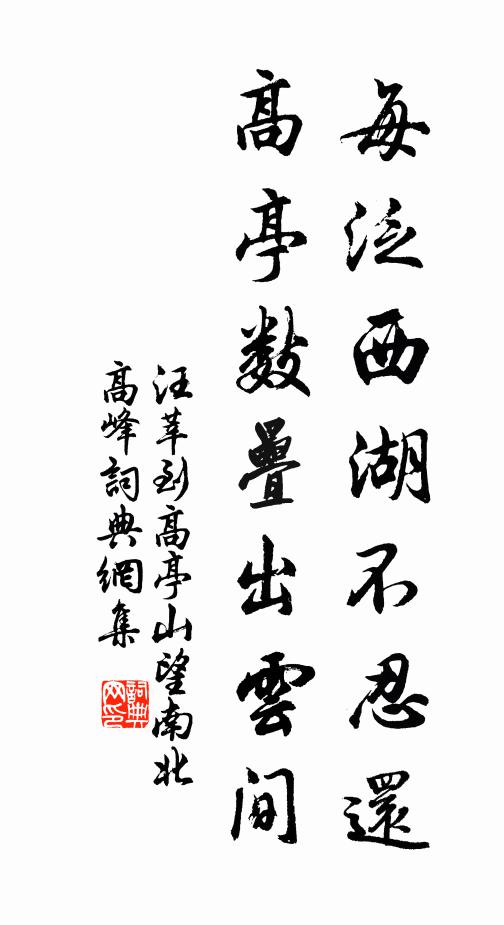 每泛西湖不忍還
高亭數疊出雲間
汪莘到高亭山望南北
高峰詞典網集
詞典網印